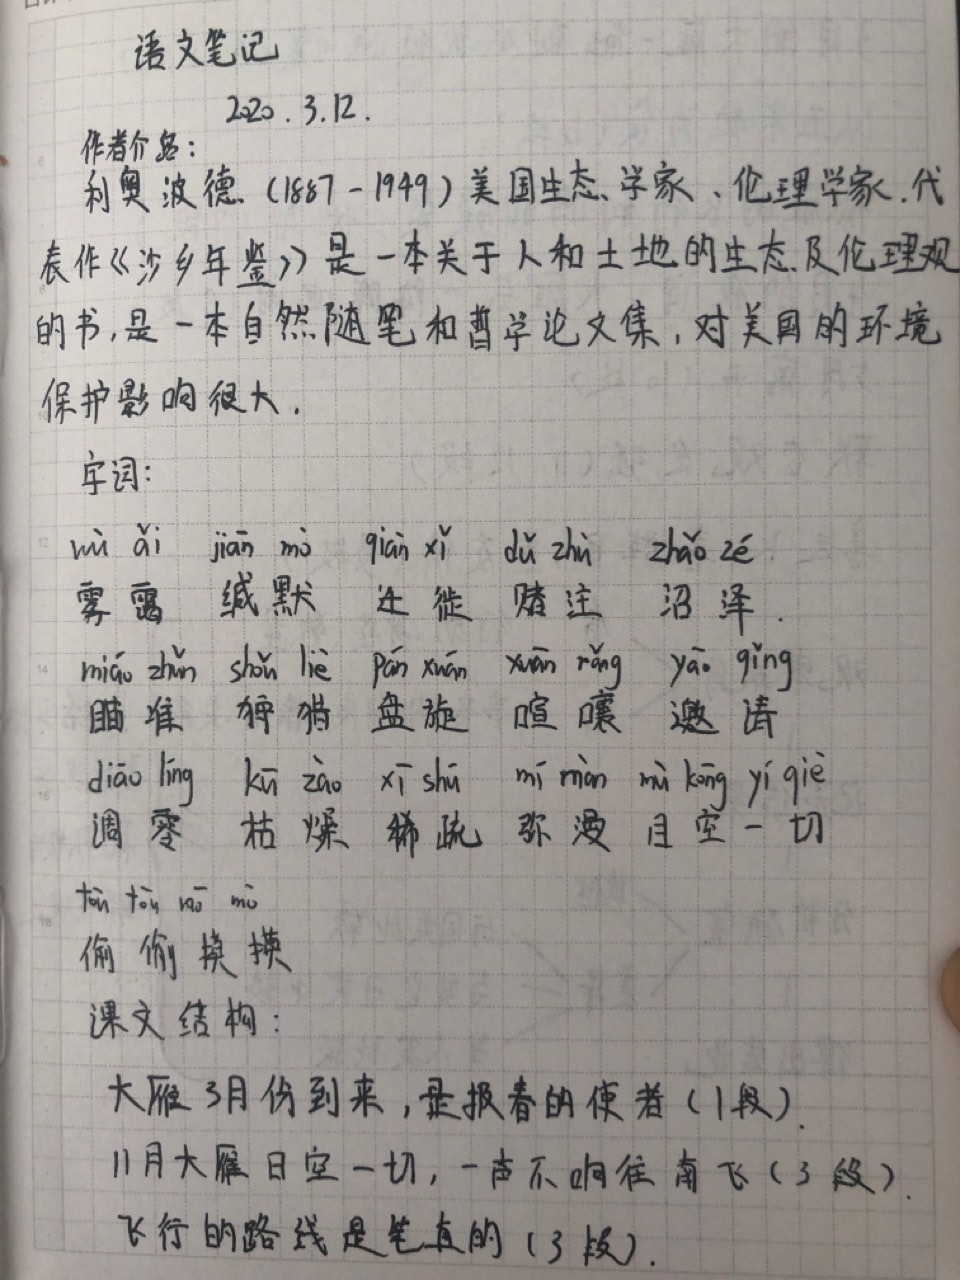 语文笔记
2020.3.12.
作者介绍:
利奥波德(1887-1949)美国生态学家、伦理学家.代
表作《沙乡年鉴》是一本关于人和土地的生态及伦理观
的书,是一本自然随笔和哲学论文集,对美国的环境
保护影响很大.
字词:
wù ǎi jiān mò qiān xǐ dǔ zhù zhǎo zé
雾霭 缄默 迁徙 赌注 沼泽.
miáo zhǔn shǒu liè pán xuán xuān rǎng yāo qǐng
瞄准 狩猎 盘旋 喧嚷 邀请
diāo líng kū zào xī shū mí màn mù kōng yí qiè
凋零 枯燥 稀疏 弥漫 目空一切
tōu tōu mō mō
偷偷摸摸
课文结构:
大雁3月份到来,是报春的使者(1段).
11月大雁目空一切,一声不响往南飞(3段).
飞行的路线是笔直的(3段).